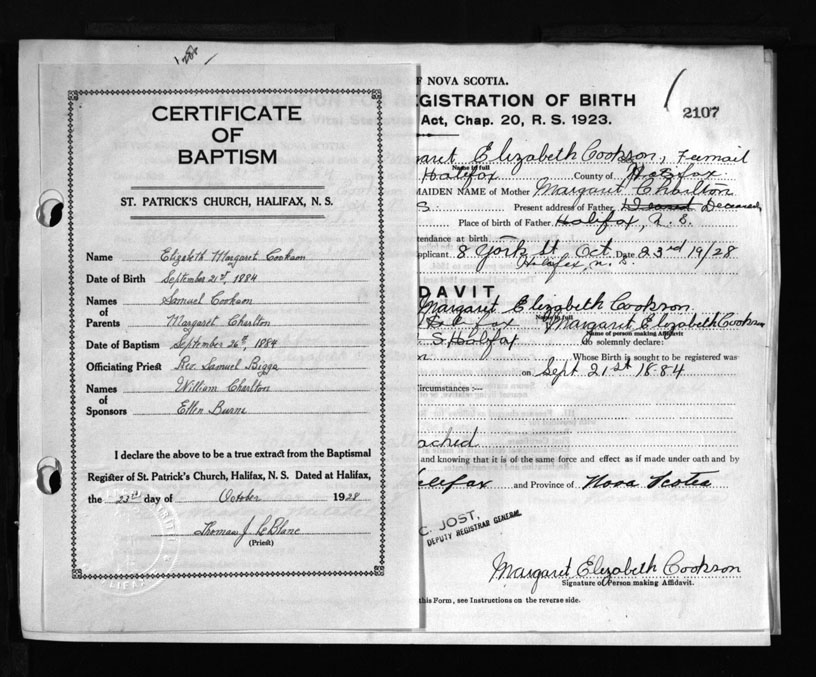 CERTIFICATE
OF
BAPTISM
ST. PATRICK'S CHURCH, HALIFAX, N. S.
Name Elizabeth Margaret Cookson
Date of Birth September 21st, 1884
Names of Parents Samuel Cookson
Margaret Charlton
Date of Baptism September 26th, 1884
Officiating Priest Rev. Samuel Bigga
Names of Sponsors William Charlton
Ellen Burns
I declare the above to be a true extract from the Baptismal
Register of St. Patrick's Church, Halifax, N. S. Dated at Halifax,
the 23rd day of October 1928
Thomas J. LeBlanc
(Priest)
F NOVA SCOTIA.
GISTRATION OF BIRTH
2107
Act, Chap. 20, R. S. 1923.
aret Elizabeth Cookson, Femail
Name in full
Halifax County of Halifax
MAIDEN NAME of Mother Margaret Charlton
S Present address of Father Deceased,
Place of birth of Father Halifax, N. S.
ttendance at birth
pplicant 8 York St Oct Date 23rd 19/28
Halifax, N. S.
DAVIT
Margaret Elizabeth Cookson
Name in full
Margaret Elizabeth Cookson
Name of person making Affidavit
S Halifax do solemnly declare:
Whose Birth is sought to be registered was
on Sept 21st 1884
ircumstances :—
ached
and knowing that it is of the same force and effect as if made under oath and by
alifax and Province of Nova Scotia
C. JOST,
DEPUTY REGISTRAR GENERAL
Margaret Elizabeth Cookson
Signature of Person making Affidavit.
this Form, see Instructions on the reverse side.